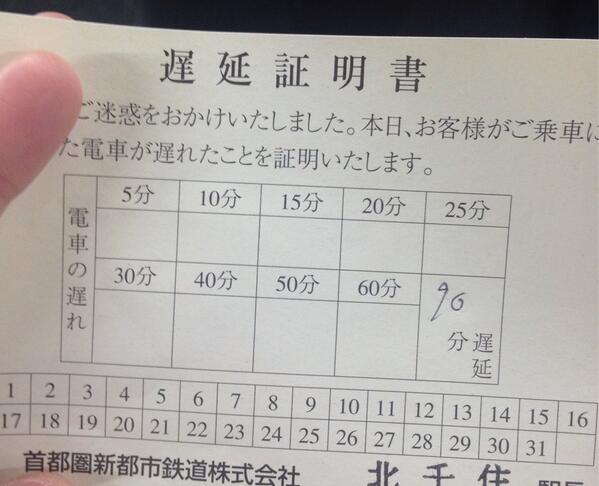 遅延証明書
ご迷惑をおかけいたしました。本日、お客様がご乗車に
た電車が遅れたことを証明いたします。
電車の遅れ
5分 10分 15分 20分 25分
30分 40分 50分 60分 90分遅延
1 2 3 4 5 6 7 8 9 10 11 12 13 14 15 16
17 18 19 20 21 22 23 24 25 26 27 28 29 30 31
首都圏新都市鉄道株式会社 北千住 駅長